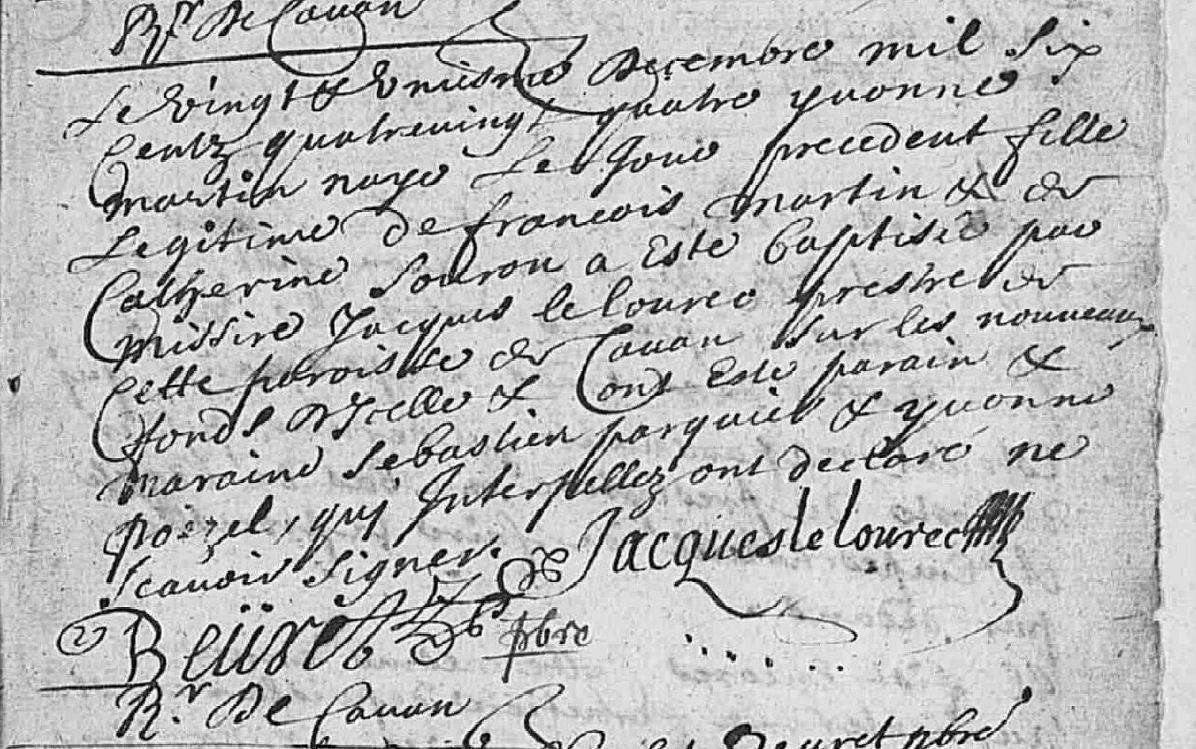 Rr De Cauan
Le Vingt & Vniesme Decembre mil Six
Centz quatrevingt quatre yuonne
martin naye Le Jour precedent fille
Legitime de francois martin & de
Catherine Souron a Este baptisée par
missire Jacques le lourec prestre de
Cette paroisse de Cauan Sur les nouueaux
fonds D'Icelle & Conts Esté parain &
maraine Sebastien parquier & yuonne
poezel, quj Interpellez ont declaré ne
Scauoir Signer. Jacques le lourec
Beüret pbre
Rr De Cauan
Beuret pbre